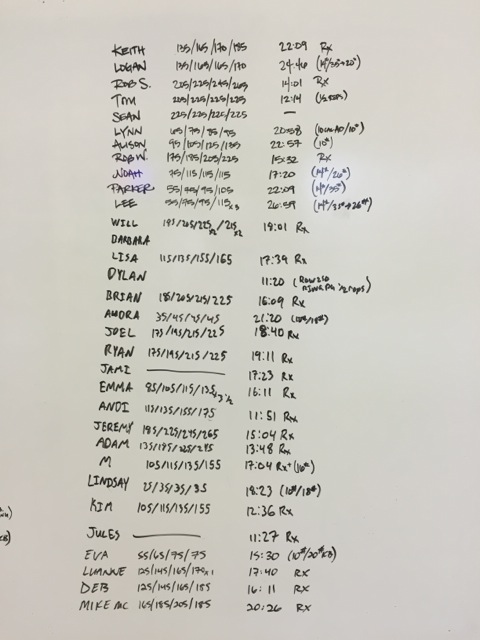 KEITH 135/165/170/185 22:09 Rx
LOGAN 135/165/165/170 24:46
ROB S. 205/225/245/265 14:01 Rx
TIM 205/225/225/225 12:14 (15 REPS)
SEAN 225/225/225/225 —
LYNN 65/75/85/95 20:58
ALISON 95/105/125/135 22:57 (10#)
ROB W. 175/185/205/225 15:32 Rx
NOAH 75/115/115/115 17:20 (14#/26#)
PARKER 55/75/95/105 22:09 (14#/35#)
LEE 55/75/95/115x3 26:59
WILL 195/205/225x2/215x2 18:01 Rx
BARBARA
LISA 115/135/155/165 17:39 Rx
DYLAN 11:20
BRIAN 185/205/215/225 16:09 Rx
35/45/45/45 21:20
JOEL 175/195/215/225 18:40 Rx
RYAN 175/195/215/225 19:11 Rx
JAMI — 17:23 Rx
EMMA 85/105/115/135 16:11 Rx
ANDI 115/135/155/175 11:51 Rx
JEREMY 185/225/245/265 15:04 Rx
ADAM 135/185/225/245 13:48 Rx
M 105/115/135/155 17:04 Rx+(16#)
LINDSAY 25/35/35/35 18:23 (10#/18#)
KIM 105/115/135/155 12:36 Rx
JULES — 11:27 Rx
EVA 55/65/75/75 15:30 (10#/20#KB)
LUANNE 125/145/165/175x1 17:40 RX
DEB 125/145/165/185 16:11 RX
MIKE MC 165/185/205/185 20:26 RX